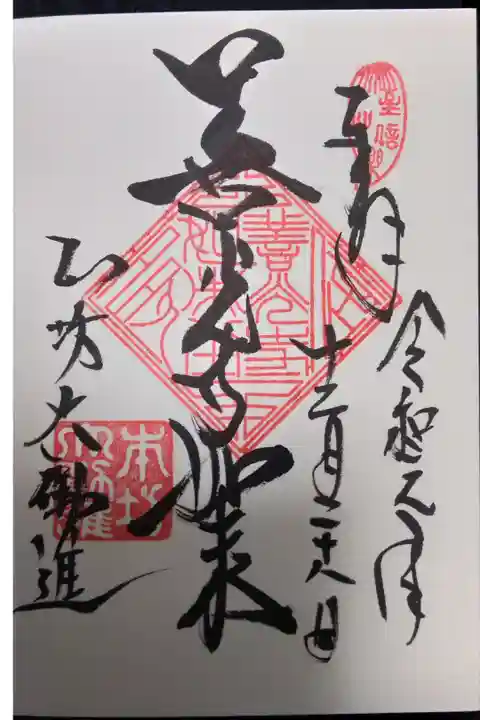 奉拝
令和元年
十二月二十八日
善光寺如来
本坊大勧進
本坊